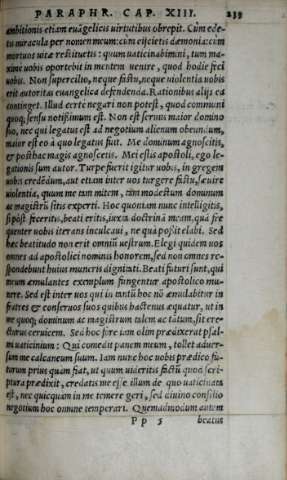 PARAPHR. CAP. XIII. 233
ambitionis etiam euāgelicis uirtutibus obrepit. Cùm ede-
tis miracula per nomen meum: cùm eijcietis dæmonia: cùm
mortuos uitæ restituetis: quum uaticinabimini, tum ma-
ximè uobis oportebit in mentem uenire, quod hodie feci
uobis. Non supercilio, neque fastu, neque uiolentia uobis
erit autoritas euangelica defendenda. Rationibus alijs ea
continget. Illud certè negari non potest, quod communi
quoq; sensu notißimum est. Non est seruus maior domino
suo, nec qui legatus est ad negotium alienum obeundum,
maior est eo à quo legatus fuit. Me dominum agnoscitis,
& posthac magis agnoscetis. Mei estis apostoli, ego le-
gationis sum autor. Turpe fuerit igitur uobis, in gregem
uobis creditum, aut etiam inter uos turgere fastu, sæuire
uiolentia, quum me tam mitem, tàm modestum dominum
ac magistrū sitis experti. Hoc quoniam nunc intelligitis,
si pòst feceritis, beati eritis, iuxta doctrinā meam, quā fre
quenter uobis iterans inculcaui, ne quà poßit elabi. Sed
hæc beatitudo non erit omniū uestrum. Elegi quidem uos
omnes ad apostolici nominis honorem, sed non omnes re-
spondebunt huius muneris dignitati. Beati futuri sunt, qui
meum æmulantes exemplum fungentur apostolico mu-
nere. Sed est inter uos qui in tantū hoc nō æmulabitur in
fratres & conseruos suos quibus bactenus æquatur, ut in
me quoq; dominum ac magistrum talem ac tātum, sit ere-
cturus ceruicem. Sed hoc fore iam olim prædixerat psal-
mi uaticinium: Qui comedit panem meum, tollet aduer-
sum me calcaneum suum. Iam nunc hoc uobis prædico fu-
turum prius quàm fiat, ut quum uideritis factū quod scri-
ptura prædixit, credatis me esse illum de quo uaticinata
est, nec quicquam in me temere geri, sed diuino consilio
negotium hoc omne temperari. Quemadmodum autem
P p 5 beatus